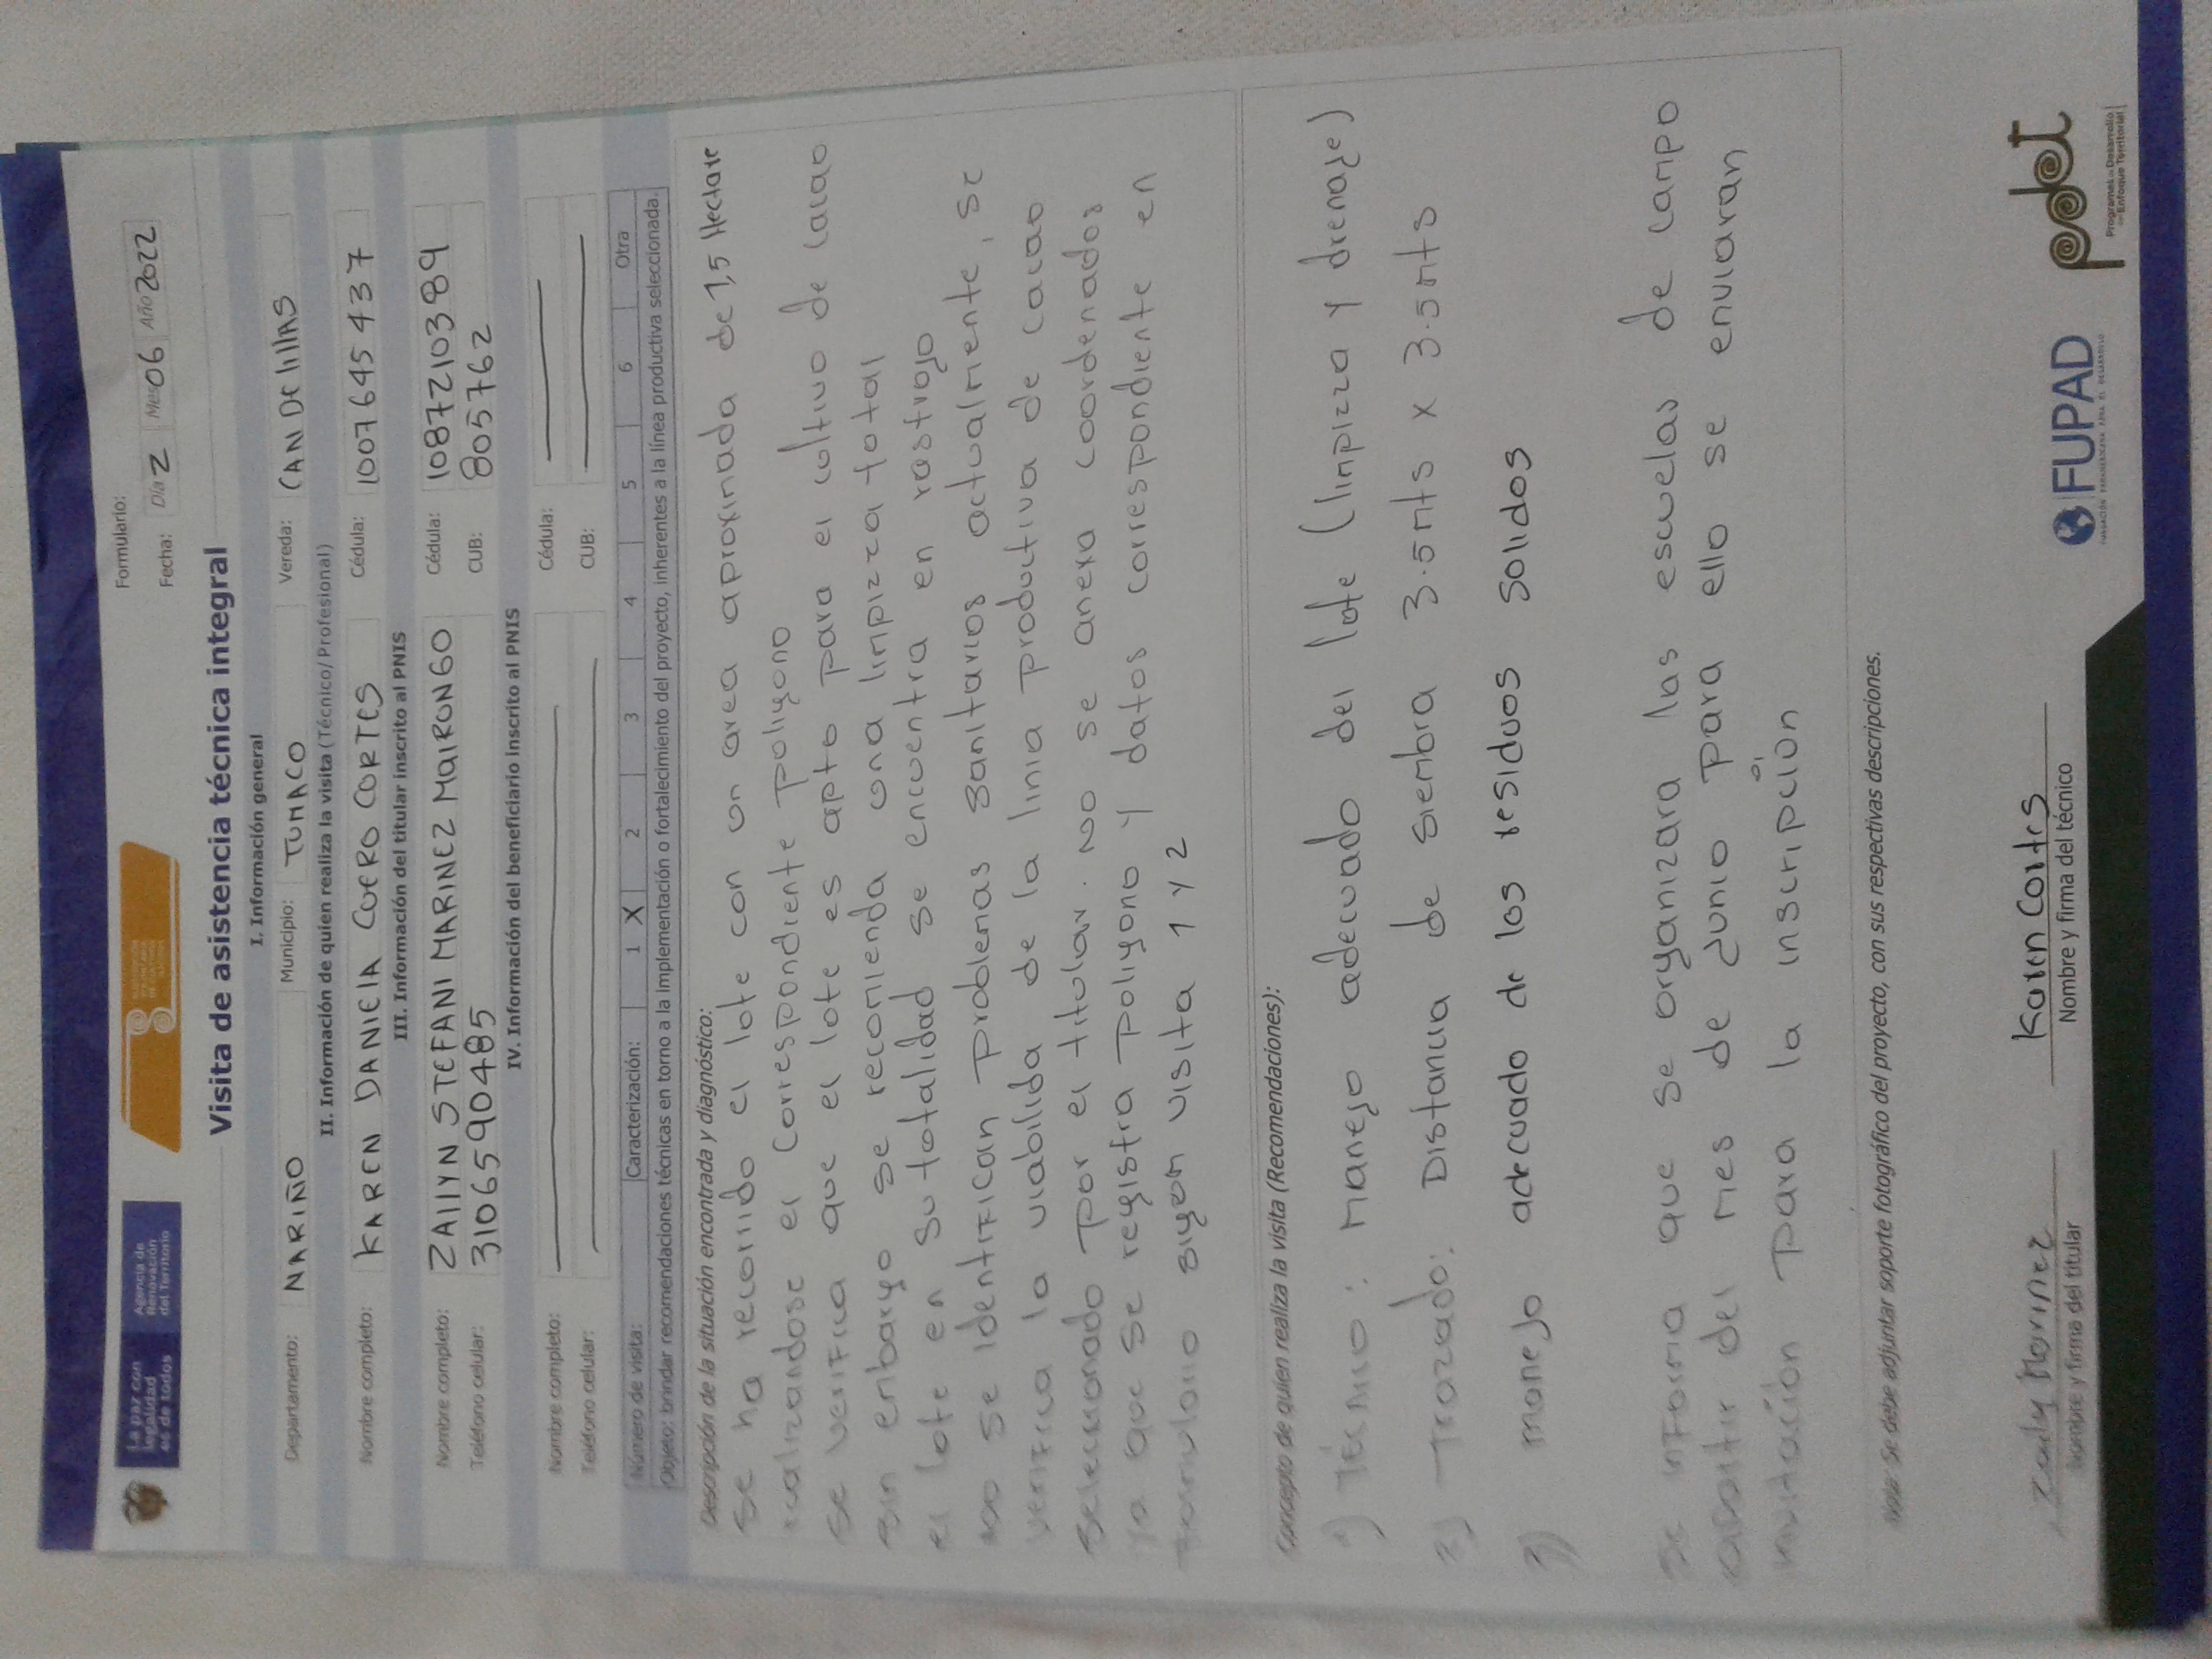 La paz con legalidad es de todos
Agencia de Renovación del Territorio
Formulario:
Fecha: Día 2 Mes 06 Año 2022
Visita de asistencia técnica integral
I. Información general
Departamento: NARIÑO Municipio: TUMACO Vereda: CANDELILLAS
II. Información de quien realiza la visita (Técnico/Profesional)
Nombre completo: KAREN DANIELA CUERO CORTES Cédula: 1007645437
III. Información del titular inscrito al PNIS
Nombre completo: ZAILYN STEFANI MARINEZ MAIRONGO Cédula: 1087210389
Teléfono celular: 3106590485 CUB: 805762
IV. Información del beneficiario inscrito al PNIS
Nombre completo: Cédula:
Teléfono celular: CUB:
Número de visita: Caracterización: 1 X 2 3 4 5 6 Otra
Objeto: brindar recomendaciones técnicas en torno a la implementación o fortalecimiento del proyecto, inherentes a la línea productiva seleccionada.
Descripción de la situación encontrada y diagnóstico:
Se ha recorrido el lote con un area aproximada de 1,5 Hectare
realizandose el correspondiente poligono
Se verifica que el lote es apto para el cultivo de cacao
Sin enbargo se recomienda una limpieza total
el lote en su totalidad se encuentra en rastrojo
no se identifican problemas sanitarios actualmente, se
verifica la viabilida de la linia productiva de cacao
seleccionado por el titular. No se anexa coordenadas
ya que se registra poligono y datos correspondiente en
formulario sigen visita 1 y 2
Concepto de quien realiza la visita (Recomendaciones):
1) Técnico: Manejo adecuado del lote (limpieza y drenaje)
2) Trazado: Distancia de siembra 3.5 mts x 3.5 mts
3) manejo adecuado de los residuos solidos
Se informa que se organizara las escuelas de campo
apartir del mes de Junio para ello se enviaran
invitación para la inscripción
Nota: Se debe adjuntar soporte fotográfico del proyecto, con sus respectivas descripciones.
Zaily Marinez
Nombre y firma del titular
Karen Cortes
Nombre y firma del técnico
FUPAD
FUNDACIÓN PANAMERICANA PARA EL DESARROLLO
pdet
Programas de Desarrollo con Enfoque Territorial